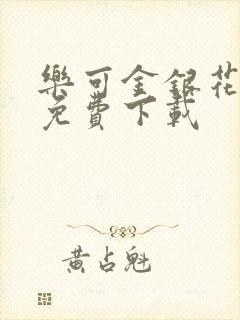 樂可金銀花
免費下載
黃占魁